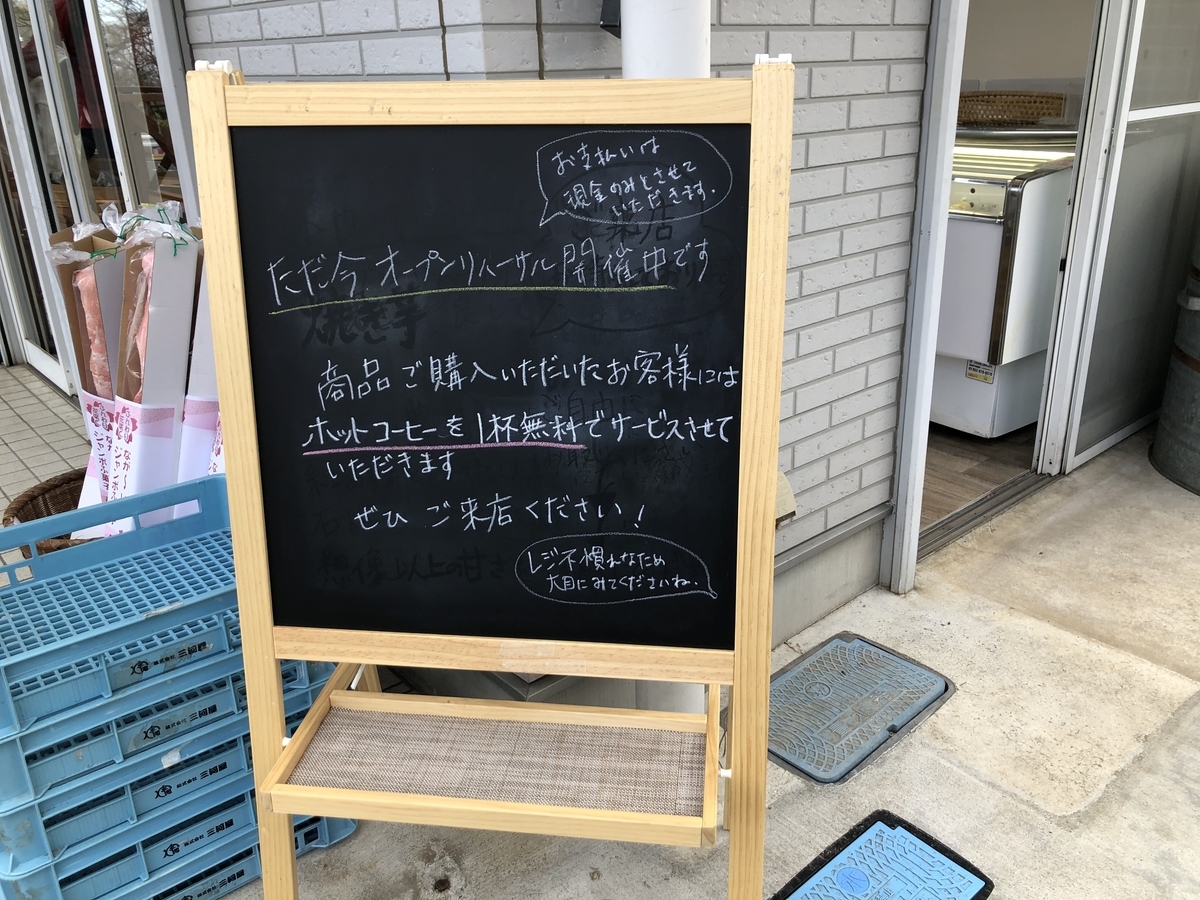 お支払いは
現金のみとさせて
いただきます.
ただ今 オープンリハーサル 開催中です
商品ご購入いただいたお客様には
ホットコーヒーを1杯無料でサービスさせて
いただきます
ぜひ ご来店ください!
レジ不慣れなため
大目にみてくださいね.
ご来店
焼き芋
想像以上の甘さ